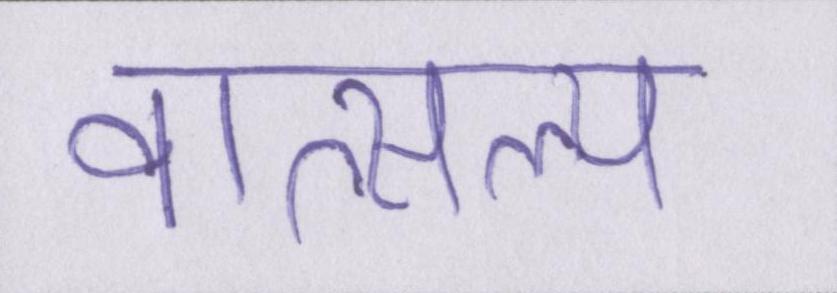 वात्सल्य